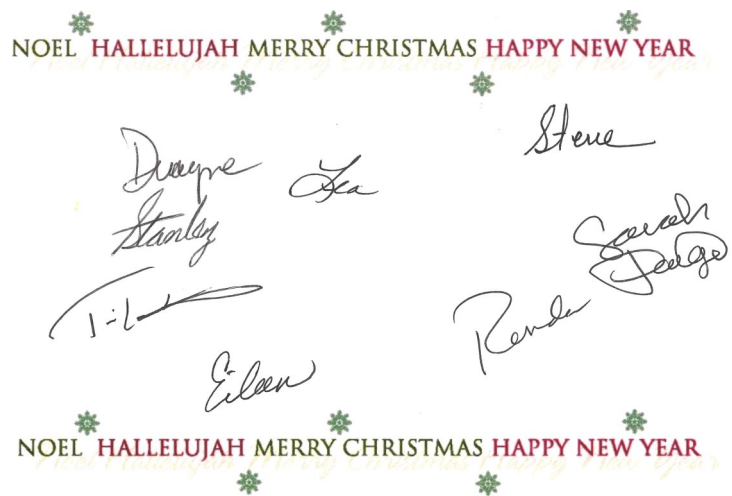 NOEL HALLELUJAH MERRY CHRISTMAS HAPPY NEW YEAR
Dwayne
Stanley
Steve
Sarah
Renda
Eileen
NOEL HALLELUJAH MERRY CHRISTMAS HAPPY NEW YEAR